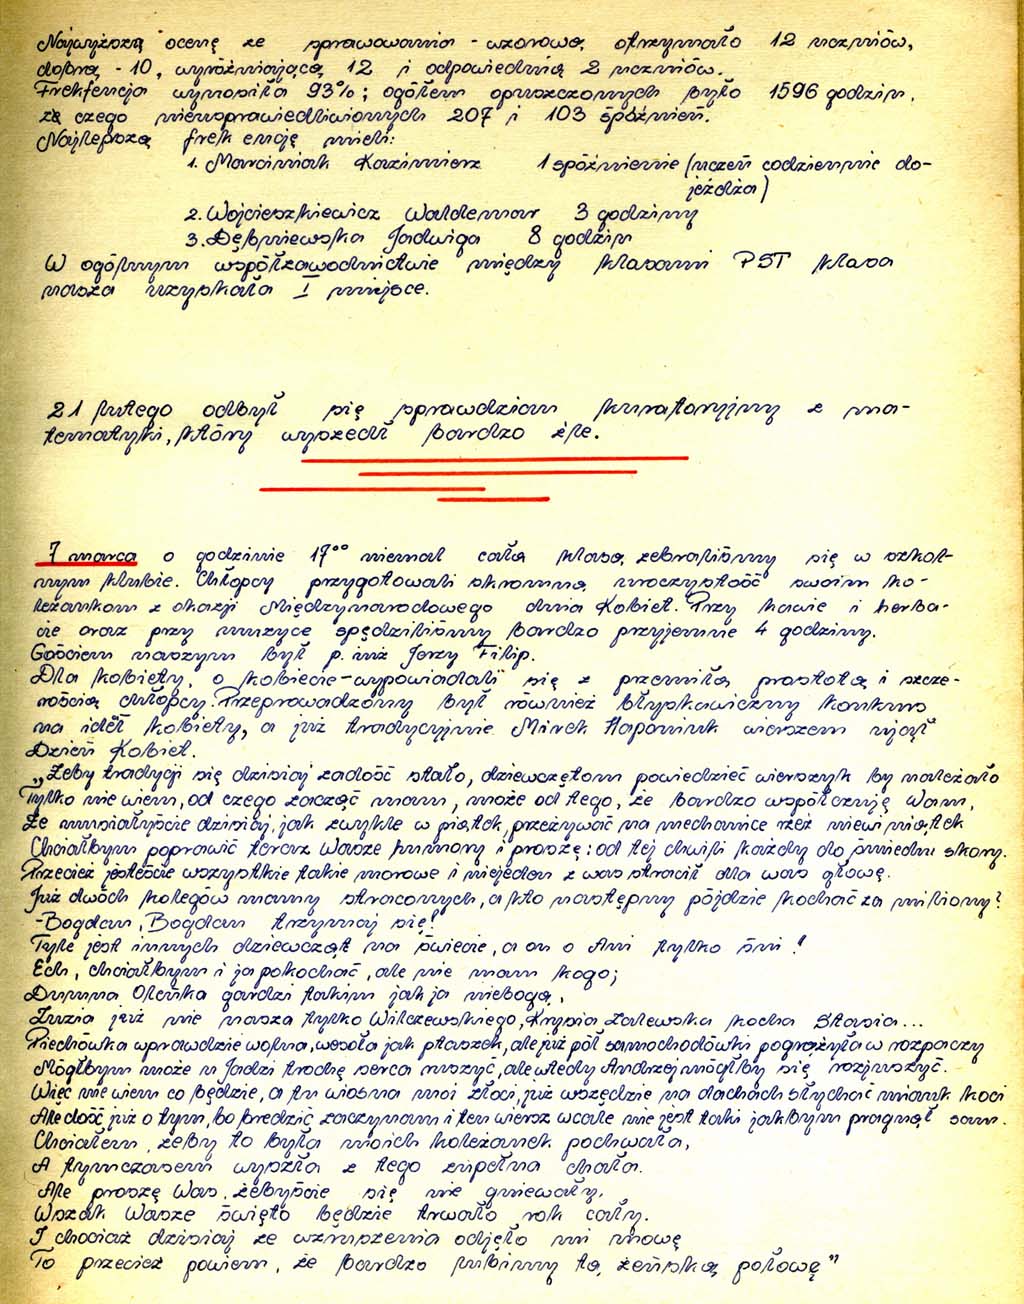 Najwyższą ocenę ze sprawowania - wzorową, otrzymało 12 uczniów,
dobrą - 10, wyróżniającą 12 i odpowiednią 2 uczniów.
Frekfencja wynosiła 93%; ogółem opuszczonych było 1596 godzin,
za czego nieusprawiedliwionych 207 i 103 spóźnień.
Najlepszą frekfencję mieli:
1. Marciniak Kazimierz 1 spóźnienie (uczeń codziennie do-
jeżdża)
2. Wojcieszkiewicz Waldemar 3 godziny
3. Dębniewska Jadwiga 8 godzin
W ogólnym współzawodnictwie między klasami PST klasa
nasza uzyskała I miejsce.
21 lutego odbył się sprawdzian kuratoryjny z ma-
tematyki, który wyszedł bardzo źle.
7 marca o godzinie 17⁰⁰ niemal całą klasą zebraliśmy się w szkol-
nym klubie. Chłopcy przygotowali skromną uroczystość swoim ko-
leżankom z okazji Międzynarodowego dnia Kobiet. Przy kawie i herba-
cie oraz przy muzyce spędziliśmy bardzo przyjemnie 4 godziny.
Gościem naszym był p. inż Jerzy Filip.
Dla kobiety, o kobiecie - wypowiadali się z przemiłą prostotą i szcze-
rością chłopcy. Przeprowadzony był również błyskawiczny konkurs
na ideł kobiety, a już tradycyjnie Mirek Haponiuk wierszem ujął
Dzień Kobiet.
„Żeby tradycji się dzisiaj zadość stało, dziewczętom powiedzieć wierszyk by należało
Tylko nie wiem, od czego zacząć mam, może od tego, że bardzo współczuję Wam,
Że musiałyście dzisiaj, jak zwykle w piątek, przeżywać na mechanice rzeź niewiniątek
Chciałbym poprawić teraz Wasze humory i proszę: od tej chwili każdy do śmiechu skory.
Przecież jesteście wszystkie takie morowe i niejeden z was stracił dla was głowę.
Już dwóch kolegów mamy straconych, a kto następny pójdzie kochać za miliony?
- Bogdan, Bogdan trzymaj się!
Tyle jest innych dziewcząt na świecie, a on o Ani tylko śni!
Ech, chciałbym i ja pokochać, ale nie mam kogo;
Dumna Oleńka gardzi takim jak ja niebogą,
Zuzia już nie nasza tylko Wilczewskiego, Krysia Zalewska kocha Stasia...
Piechówka wprawdzie wolna, wesoła jak ptaszek, ale już pół samochodówki pogrążyła w rozpaczy
Mógłbym może u Jadzi trochę serca uszczyć, ale wtedy Andrzej mógłby się rozjuszyć.
Więc nie wiem co będzie, a tu wiosna moi złoci, już wszędzie na dachach słychać miauk koci
Ale dość już o tym, bo bredzić zaczynam i ten wiersz wcale nie jest taki jakbym pragnął sam.
Chciałem, żeby to była moich koleżanek pochwała,
A tymczasem wyszła z tego zupełna chała.
Ale proszę Was, żebyście się nie gniewały,
Wszak Wasze święto będzie trwało rok cały.
I chociaż dzisiaj ze wzruszenia odjęło mi mowę
To przecież powiem, że bardzo lubimy tą żeńską połowę"